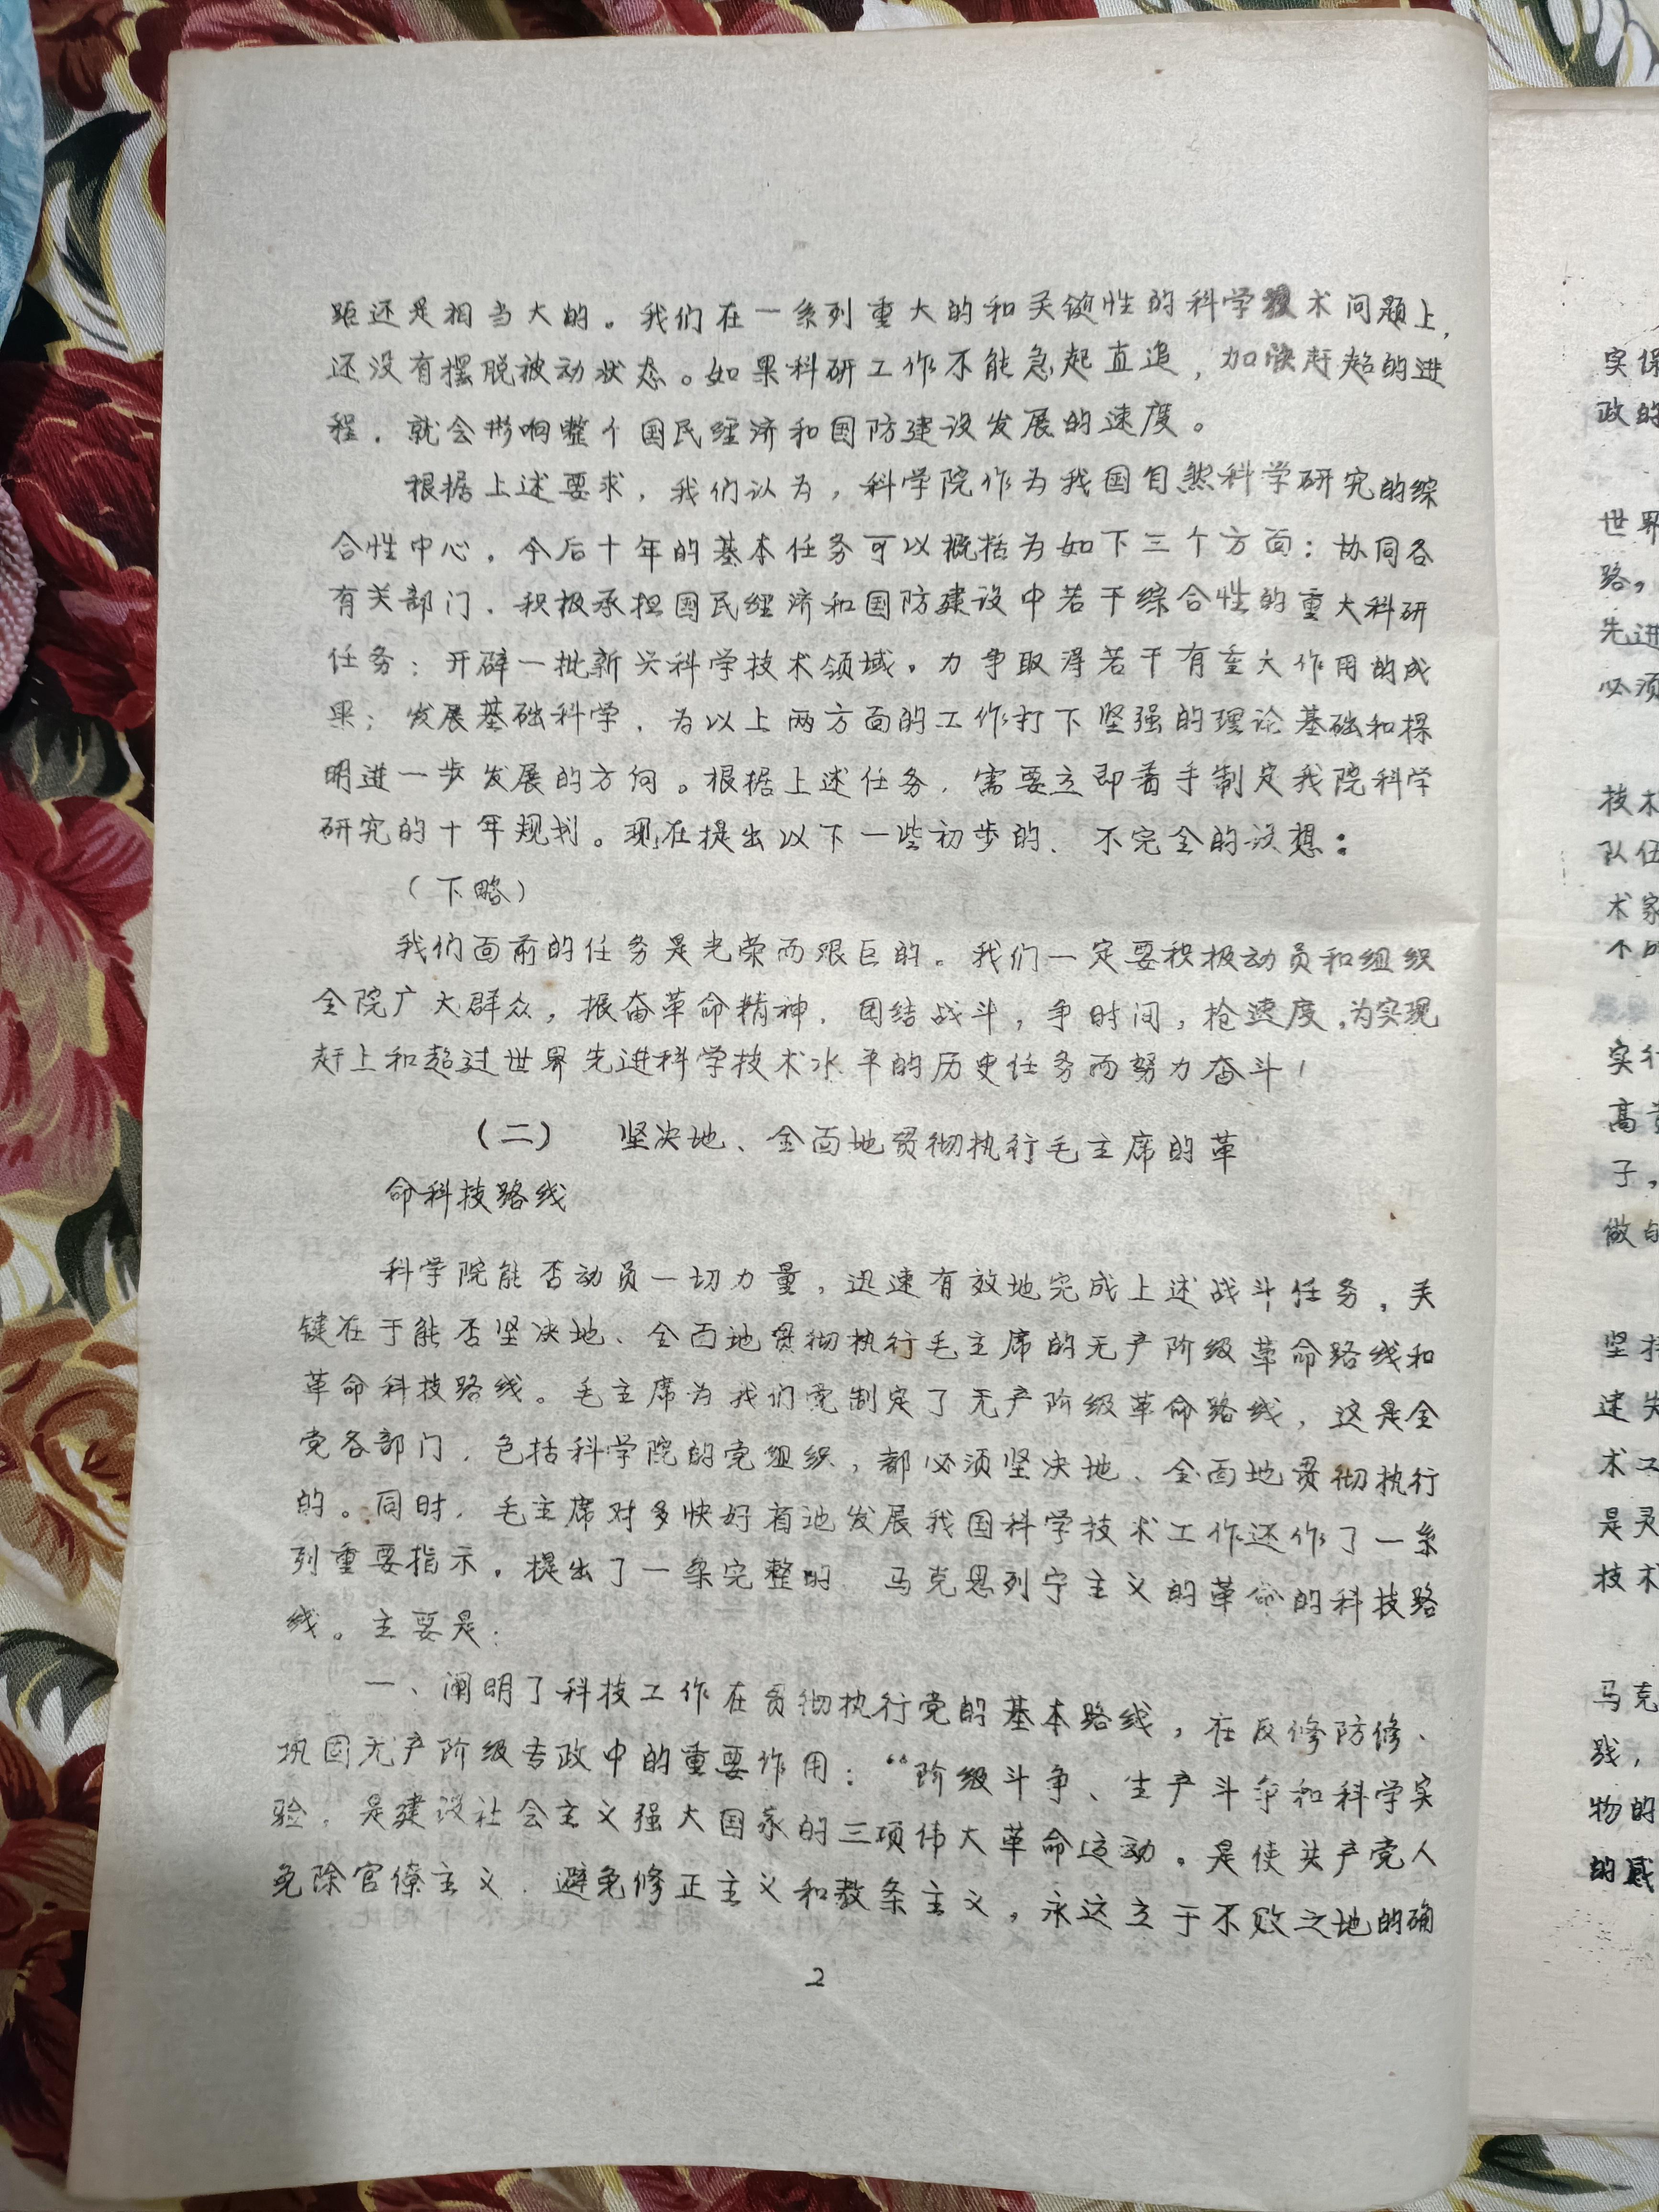 距还是相当大的。我们在一系列重大的和关键性的科学技术问题上，
还没有摆脱被动状态。如果科研工作不能急起直追，加快赶超的进
程，就会影响整个国民经济和国防建设发展的速度。
根据上述要求，我们认为，科学院作为我国自然科学研究的综
合性中心，今后十年的基本任务可以概括为如下三个方面：协同各
有关部门，积极承担国民经济和国防建设中若干综合性的重大科研
任务；开辟一批新兴科学技术领域，力争取得若干有重大作用的成
果；发展基础科学，为以上两方面的工作打下坚强的理论基础和探
明进一步发展的方向。根据上述任务，需要立即着手制定我院科学
研究的十年规划。现在提出以下一些初步的、不完全的设想：
（下略）
我们面前的任务是光荣而艰巨的。我们一定要积极动员和组织
全院广大群众，振奋革命精神，团结战斗，争时间，抢速度，为实现
赶上和超过世界先进科学技术水平的历史任务而努力奋斗！
（二） 坚决地、全面地贯彻执行毛主席的革
命科技路线
科学院能否动员一切力量，迅速有效地完成上述战斗任务，关
键在于能否坚决地、全面地贯彻执行毛主席的无产阶级革命路线和
革命科技路线。毛主席为我们党制定了无产阶级革命路线，这是全
党各部门，包括科学院的党组织，都必须坚决地、全面地贯彻执行
的。同时，毛主席对多快好省地发展我国科学技术工作还作了一系
列重要指示，提出了一条完整的、马克思列宁主义的革命的科技路
线。主要是：
一、阐明了科技工作在贯彻执行党的基本路线，在反修防修、
巩固无产阶级专政中的重要作用：“阶级斗争、生产斗争和科学实
验，是建设社会主义强大国家的三项伟大革命运动，是使共产党人
免除官僚主义、避免修正主义和教条主义，永远立于不败之地的确
2
实保
政的
世界
路，
先进
必须
技术
队伍
术家
不
实行
高
子，
做
坚持
建
术工
是灵
技术
马克
践，
物的
的感